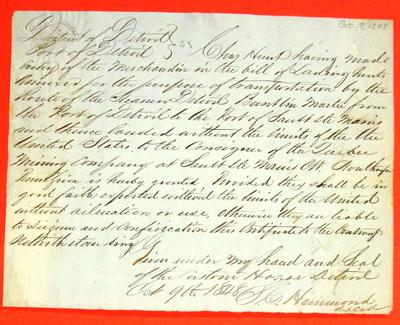 Oct. 9, 1848
District of Detroit
Port of Detroit } SS Chas Hunt having made
entry of the Merchandise in the bill of Lading hereto
annexed for the purpose of transportation by the
Route of the Steamer Detroit, Master from
the Port of Detroit to the Port of Sault Ste Marie
and thence landed without the limits of the
United States, to the Consignee of the Quebec
Mining Company at Sault Ste Marie CW.
is hereby granted. Provided they shall be in
good faith exported without the limits of the United
without alteration or use, otherwise they are liable
to seizure and confiscation this Certificate to the contrary
Notwithstanding
Given under my hand and Seal
of the Custom House Detroit
Oct 9th 1848 Hammond